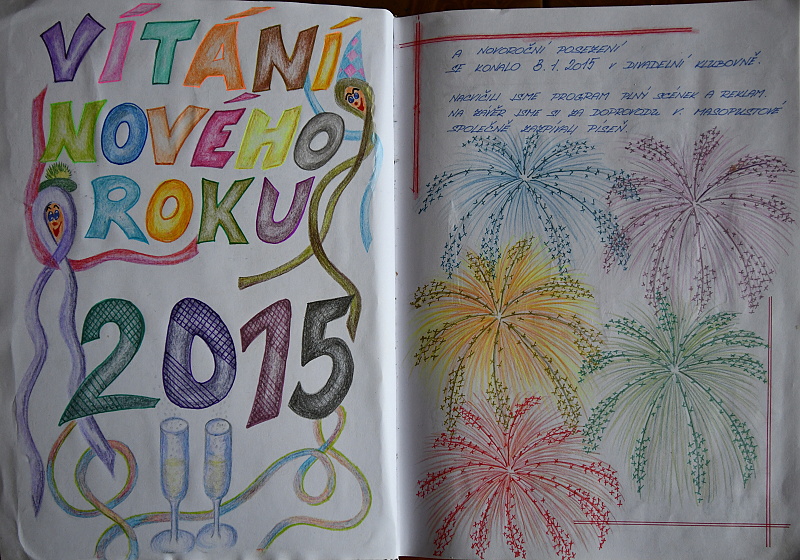 VÍTÁNÍ
NOVÉHO
ROKU
2015
A NOVOROČNÍ POSEZENÍ
SE KONALO 8.1.2015 V DIVADELNÍ KLUBOVNĚ.
NACVIČILI JSME PROGRAM PLNÝ SCÉNEK A REKLAM.
NA ZÁVĚR JSME SI ZA DOPROVODU V. MASOPUSTOVÉ
SPOLEČNĚ ZAZPÍVALI PÍSEŇ.